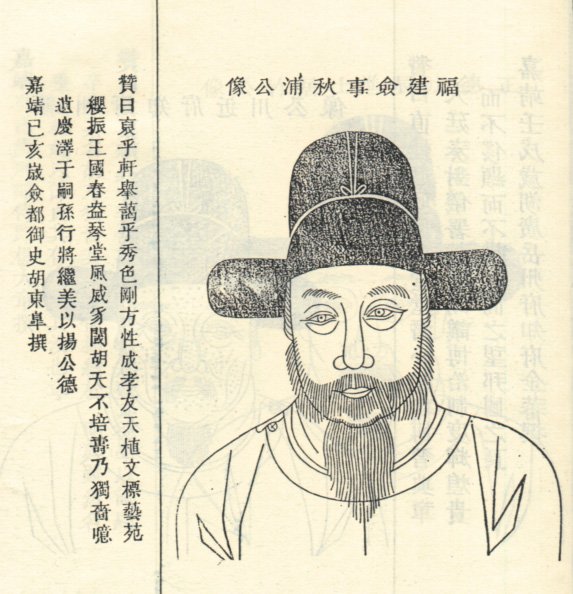 福建僉事秋浦公像
贊曰乎軒舉藹乎秀色剛方性成孝友天植文標藝苑
纓振王國春盎琴堂風威豸閫胡天不培壽乃獨嗇噫
遺慶澤于嗣孫行將繼美以揚公德
嘉靖己亥歲僉都御史胡東皋撰